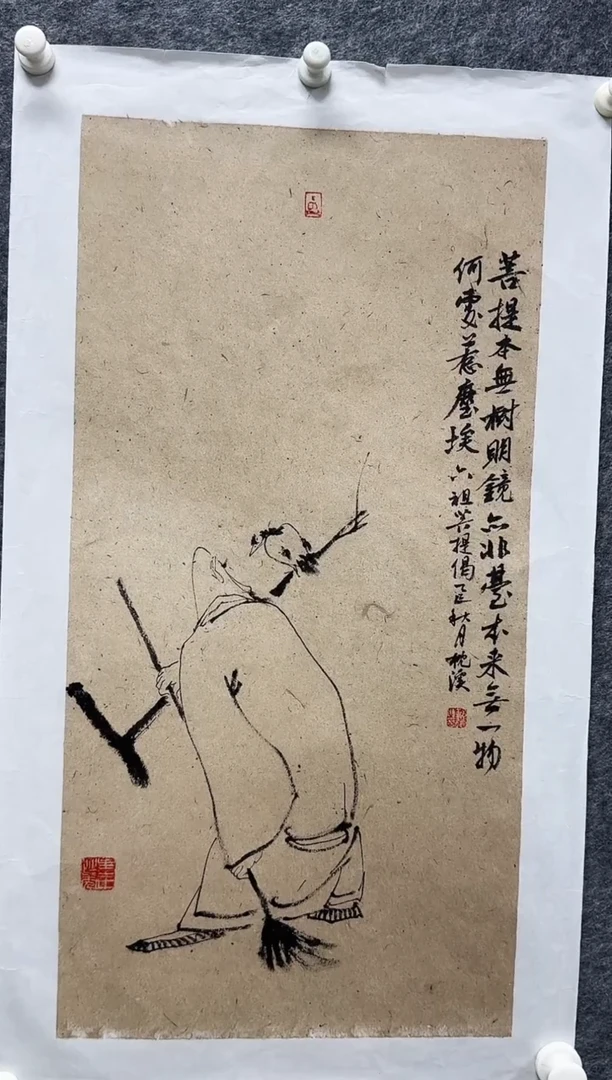 菩提本無樹明鏡亦非臺本来無一物
何處惹塵埃六祖菩提偈
秋月枕溪